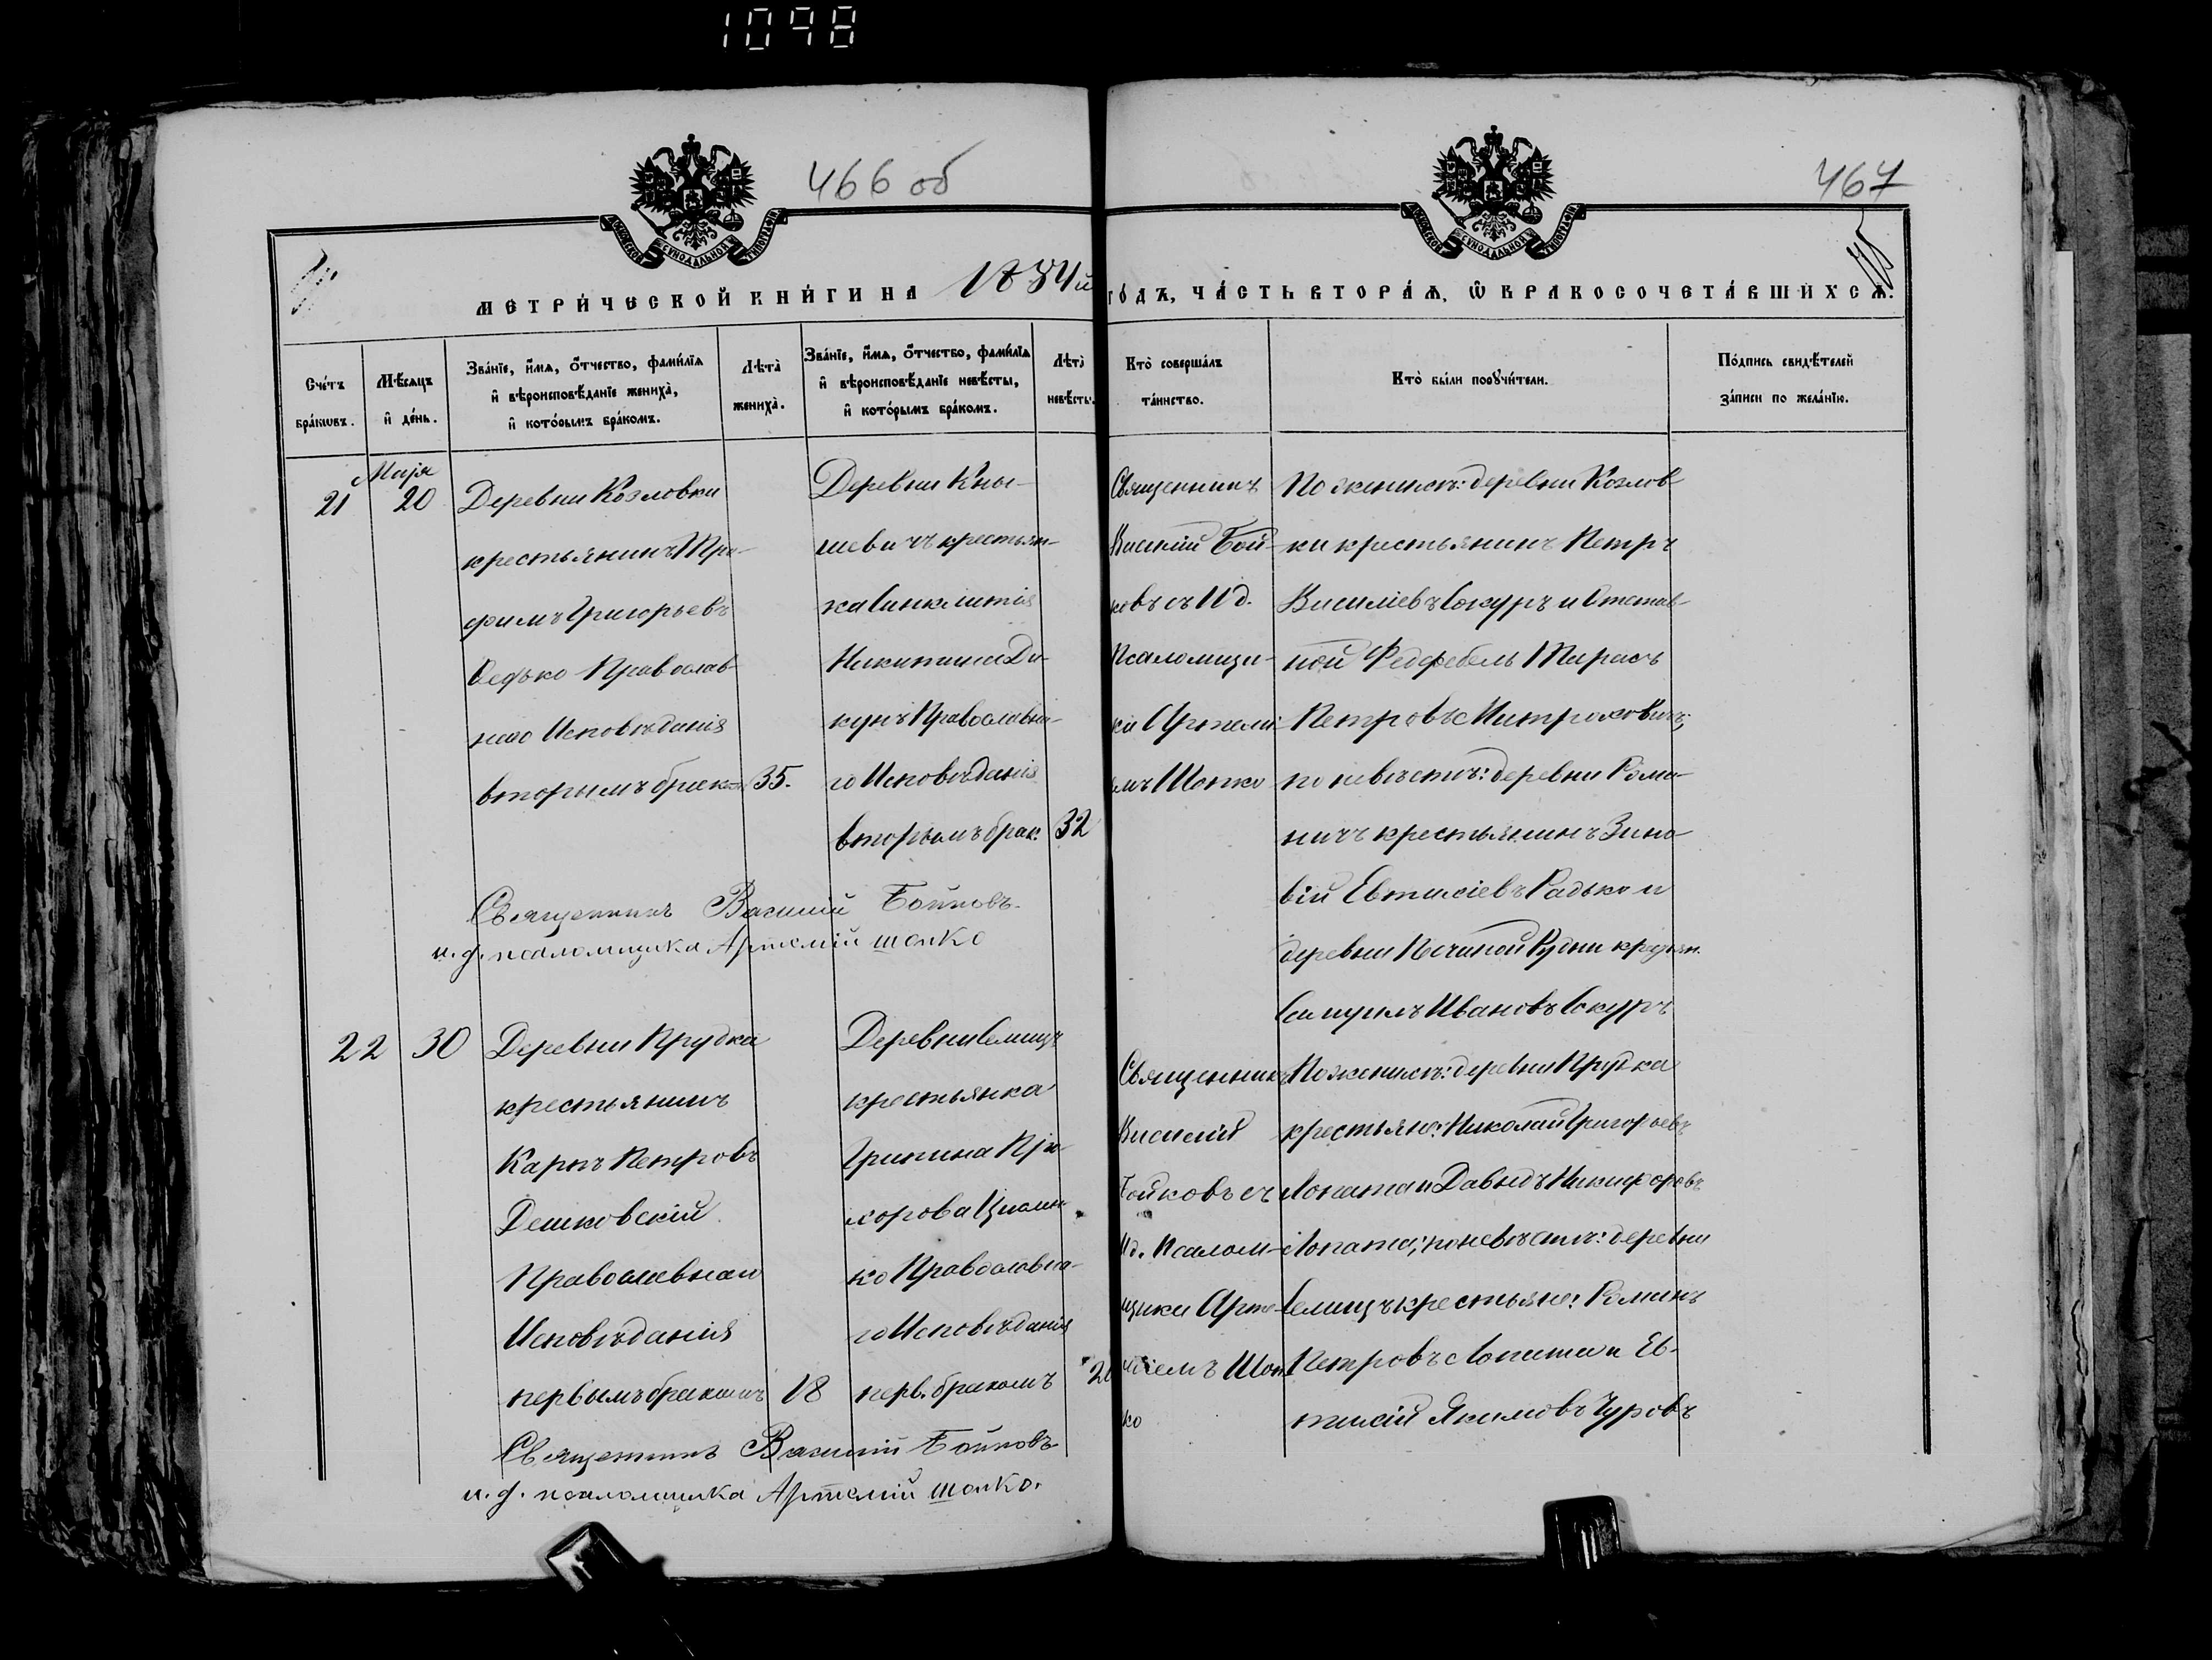 1098
466 об
467
МОСКОВСКОЙ СѴНОДАЛЬНОЙ ТИПОГРАФІИ
МОСКОВСКОЙ СѴНОДАЛЬНОЙ ТИПОГРАФІИ
МЕТРИ́ЧЕСКОЙ КНИ́ГИ НА 1884й
ГО́ДЪ, ЧА́СТЬ ВТОРА́Ѧ, Ѡ БРАКОСОЧЕТА́ВШИХСѦ.
Сче́тъ бра́кѡвъ.
Мѣ́сяцъ и҆ де́нь.
Зва́нїе, и҆́мѧ, ѻ҆́тчество, фами́лїѧ
и҆ вѣроисповѣ́данїе жениха̀,
и҆ кото́рымъ бра́комъ.
Лѣта̀ жениха̀.
Зва́нїе, и҆́мѧ, ѻ҆́тчество, фами́лїѧ
и҆ вѣроисповѣ́данїе невѣ́сты,
и҆ кото́рымъ бра́комъ.
Лѣта̀ невѣ́сты.
Кто̀ соверша́лъ та́инство.
Кто̀ бы́ли порꙋчи́тели.
По́дпись свидѣ́телей за́писи по жела́нїю.
21
Мая
20
Деревни Козловки
крестьянинъ Тро-
фимъ Григорьевъ
Седько Православ-
наго Исповѣданія
вторымъ брак. 35.
Деревни Кны-
шевичъ крестьян-
ка Синклитія
Никитина Ди-
кунъ Православна-
го Исповѣданія
вторымъ брак. 32
Священникъ
Василій Бой-
ковъ съ И д.
Псаломщи-
ка Артемі-
емъ Шопко
По женихѣ: деревни Козлов
ки крестьянинъ Петръ
Василіевъ Сокуръ и Отстав-
ной Федфебель Тарасъ
Петровъ Митроховичъ;
по невѣстѣ: деревни Рома-
ничъ крестьянинъ Зино-
вій Евтихіевъ Радько и
деревни Песчаной Рудни крестьян.
Самуилъ Ивановъ Сокуръ
Священникъ Василій Бойковъ
и. д. псаломщика Артемій Шопко
22
30
Деревни Прудка
крестьянинъ
Карпъ Петровъ
Дешковскій
Православнаго
Исповѣданія
первымъ бракомъ 18
Деревни Селищъ
крестьянка
Агрипина Про-
хорова
ко Православна-
го Исповѣданія
перв. бракомъ 20
Священникъ
Василій
Бойковъ съ
И д. Псалом-
щика Арте-
міемъ Шоп
ко
По женихѣ: деревни Прудка
крестьяне: Николай Григорьевъ
Лопата и Давидъ Никифоровъ
Лопата; по невѣстѣ: деревни
Селищъ крестьяне: Романъ
Петровъ Лопата и Ев-
тихій Якимовъ Чуровъ
Священникъ Василій Бойковъ
и. д. псаломщика Артемій Шопко.